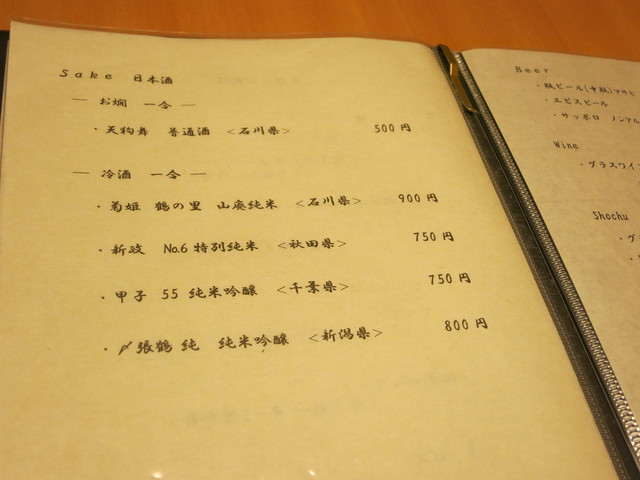 Sake 日本酒
― お燗 一合 ―
・天狗舞 普通酒 <石川県> 500円
― 冷酒 一合 ―
・菊姫 鶴の里 山廃純米 <石川県> 900円
・新政 No.6 特別純米 <秋田県> 750円
・甲子 55 純米吟醸 <千葉県> 750円
・〆張鶴 純 純米吟醸 <新潟県> 800円
Beer
・瓶ビール(中瓶)アサヒ
・エビスビール
・サッポロ ノンアル
Wine
・グラスワイ
Shochu
・グ